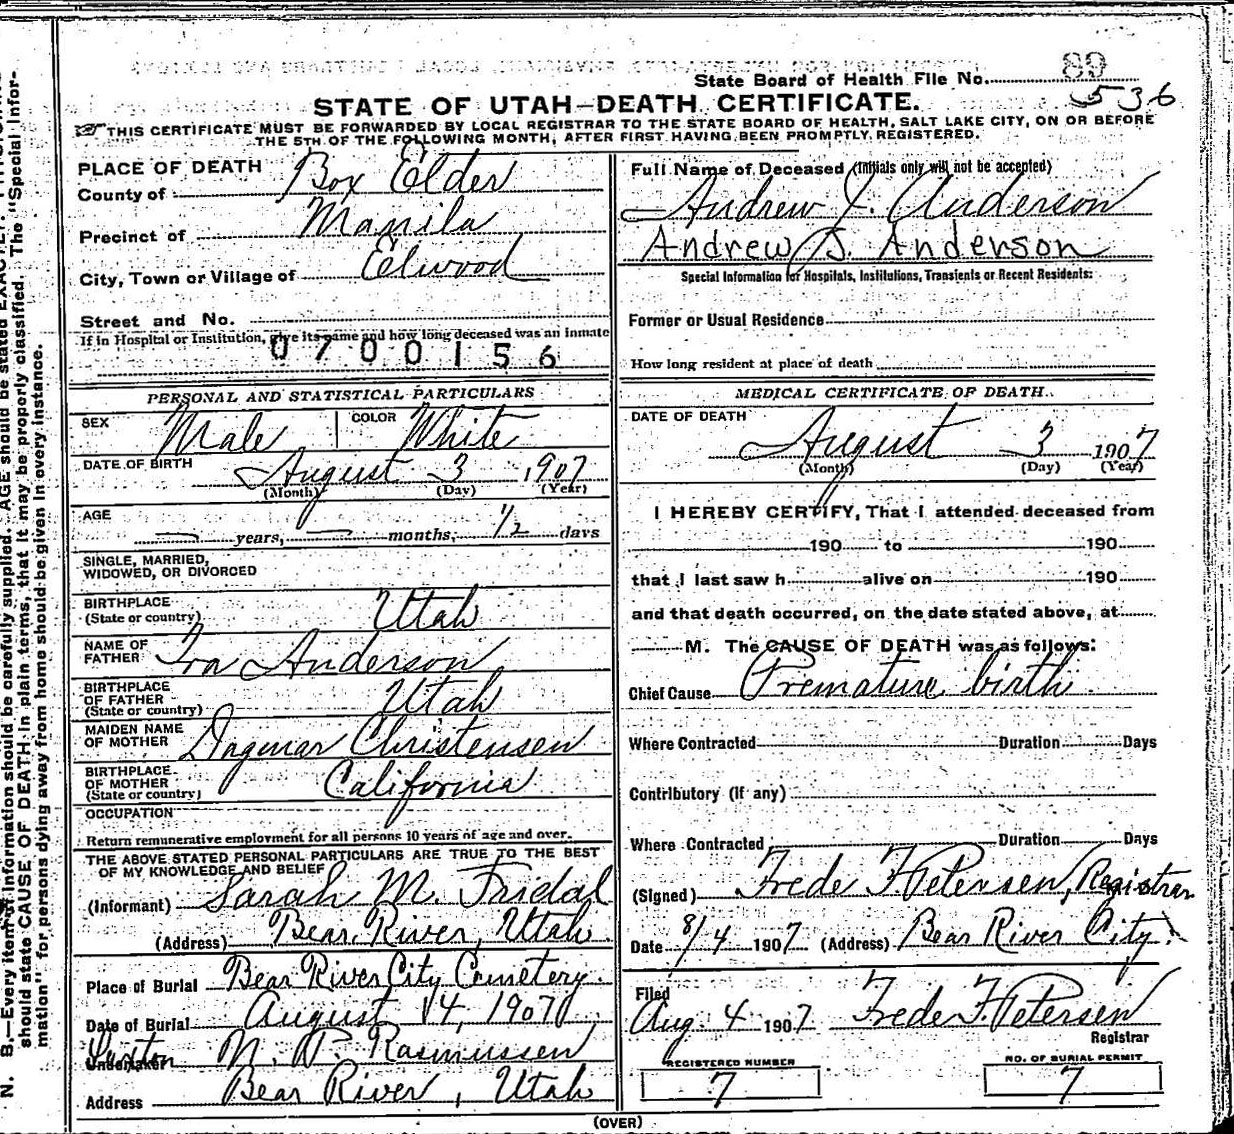 State Board of Health File No. 89
536
STATE OF UTAH—DEATH CERTIFICATE.
THIS CERTIFICATE MUST BE FORWARDED BY LOCAL REGISTRAR TO THE STATE BOARD OF HEALTH, SALT LAKE CITY, ON OR BEFORE
THE 5TH OF THE FOLLOWING MONTH, AFTER FIRST HAVING BEEN PROMPTLY REGISTERED.
PLACE OF DEATH
County of Box Elder
Precinct of Manila
City, Town or Village of Elwood
Street and No.
If in Hospital or Institution, give its name and how long deceased was an inmate
0700156
Full Name of Deceased (Initials only will not be accepted)
Andrew J. Anderson
Andrew J. Anderson
Special Information for Hospitals, Institutions, Transients or Recent Residents:
Former or Usual Residence
How long resident at place of death
PERSONAL AND STATISTICAL PARTICULARS
SEX Male COLOR White
DATE OF BIRTH August 3 1907
(Month) (Day) (Year)
AGE
— years, — months, 1/2 days
SINGLE, MARRIED,
WIDOWED, OR DIVORCED
BIRTHPLACE
(State or country) Utah
NAME OF
FATHER Ira Anderson
BIRTHPLACE
OF FATHER
(State or country) Utah
MAIDEN NAME
OF MOTHER Dagmar Christensen
BIRTHPLACE
OF MOTHER
(State or country) California
OCCUPATION
Return remunerative employment for all persons 10 years of age and over.
THE ABOVE STATED PERSONAL PARTICULARS ARE TRUE TO THE BEST
OF MY KNOWLEDGE AND BELIEF
(Informant) Sarah M. Fridal
(Address) Bear River, Utah
Place of Burial Bear River City Cemetery.
Date of Burial August 4, 1907
Sexton
Undertaker N. P. Rasmussen
Address Bear River, Utah
MEDICAL CERTIFICATE OF DEATH.
DATE OF DEATH
August 3 1907
(Month) (Day) (Year)
I HEREBY CERTIFY, That I attended deceased from
190 to 190
that I last saw h alive on 190
and that death occurred, on the date stated above, at
M. The CAUSE OF DEATH was as follows:
Chief Cause Premature birth
Where Contracted Duration Days
Contributory (if any)
Where Contracted Duration Days
(Signed) Frede F. Petersen, Registrar
Date 8/4 1907 (Address) Bear River City.
Filed
Aug. 4 1907 Frede F. Petersen
Registrar
REGISTERED NUMBER
7
NO. OF BURIAL PERMIT
7
(OVER)
N. B.—Every item of information should be carefully supplied. AGE should be stated EXACTLY.
should state CAUSE OF DEATH in plain terms, that it may be properly classified. The "Special Infor-
mation" for persons dying away from home should be given in every instance.